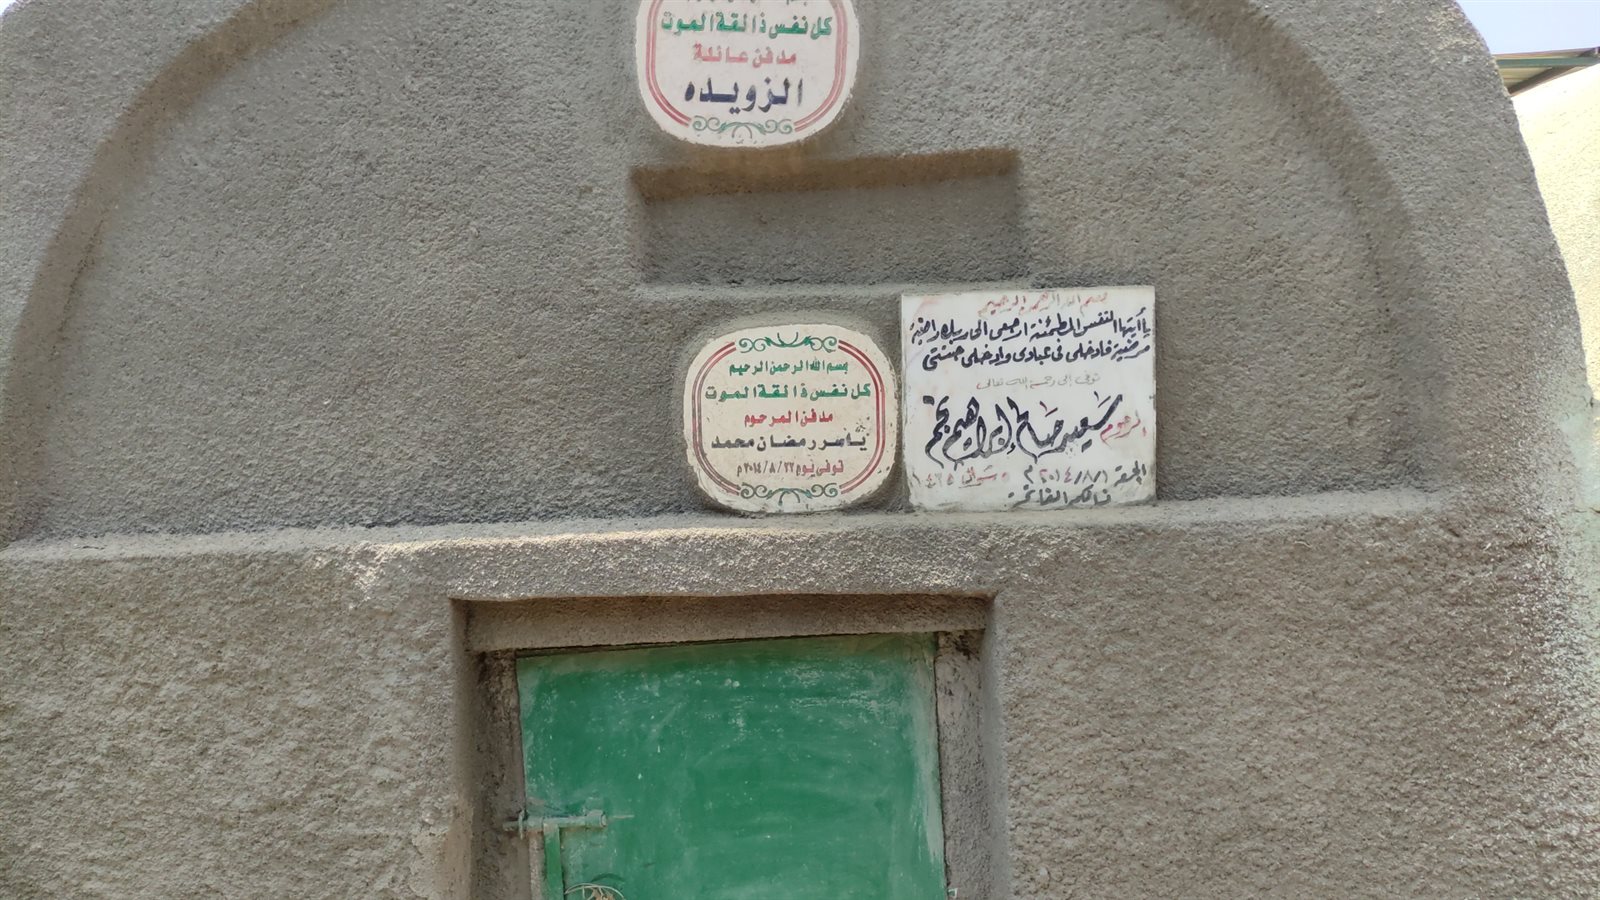 كل نفس ذائقة الموت
مدفن عائلة
الزويده
بسم الله الرحمن الرحيم
كل نفس ذائقة الموت
مدفن المرحوم
ياسر رمضان محمد
توفى يوم ٢٢/٨/٢٠١٤م
بسم الله الرحمن الرحيم
يأيتها النفس المطمئنة ارجعى الى ربك راضية
مرضية فادخلى فى عبادى وادخلى جنتى
توفى إلى رحمة الله تعالى
المرحوم سعيد صالح إبراهيم نجم
الجمعة ٢٠١٤/٨/١م ٥ شوال ١٤٣٥
نسألكم الفاتحة